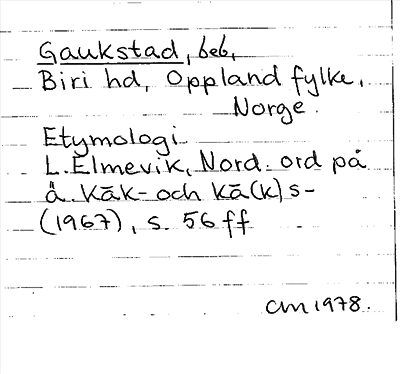 Gaukstad, beb,
Biri hd, Oppland fylke,
Norge.
Etymologi
L. Elmevik, Nord. ord på
å. kāk- och kā(k)s-
(1967), s. 56 ff
CM 1978.